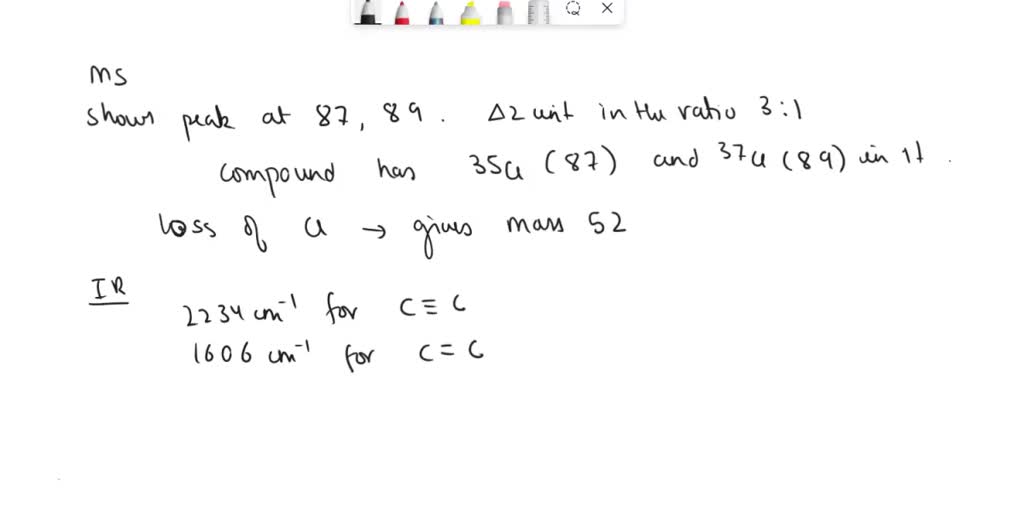 MS
shows peak at 87, 89. Δ2 unit in the ratio 3:1
compound has 35Cl (87) and 37Cl (89) in it.
loss of Cl → gives mass 52
IR
2234 cm⁻¹ for C≡C
1606 cm⁻¹ for C=C